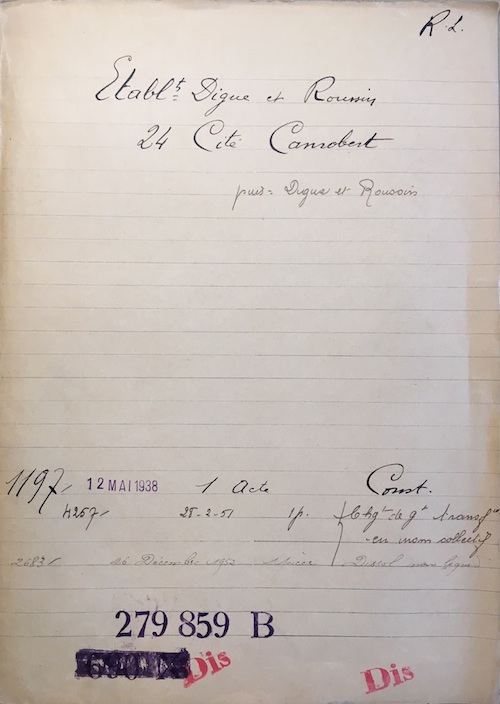 R.L.
Etablt Digue et Roussin
24 Cité Canrobert
puis = Digue et Roussin
1197 / 12 MAI 1938 1 Acte Const.
4257 / 28-2-51 1 p. Chgt de gt transfon
en nom collectif
2683 / 26 Décembre 1952 1 pièce Dissol
279 859 B
Dis Dis